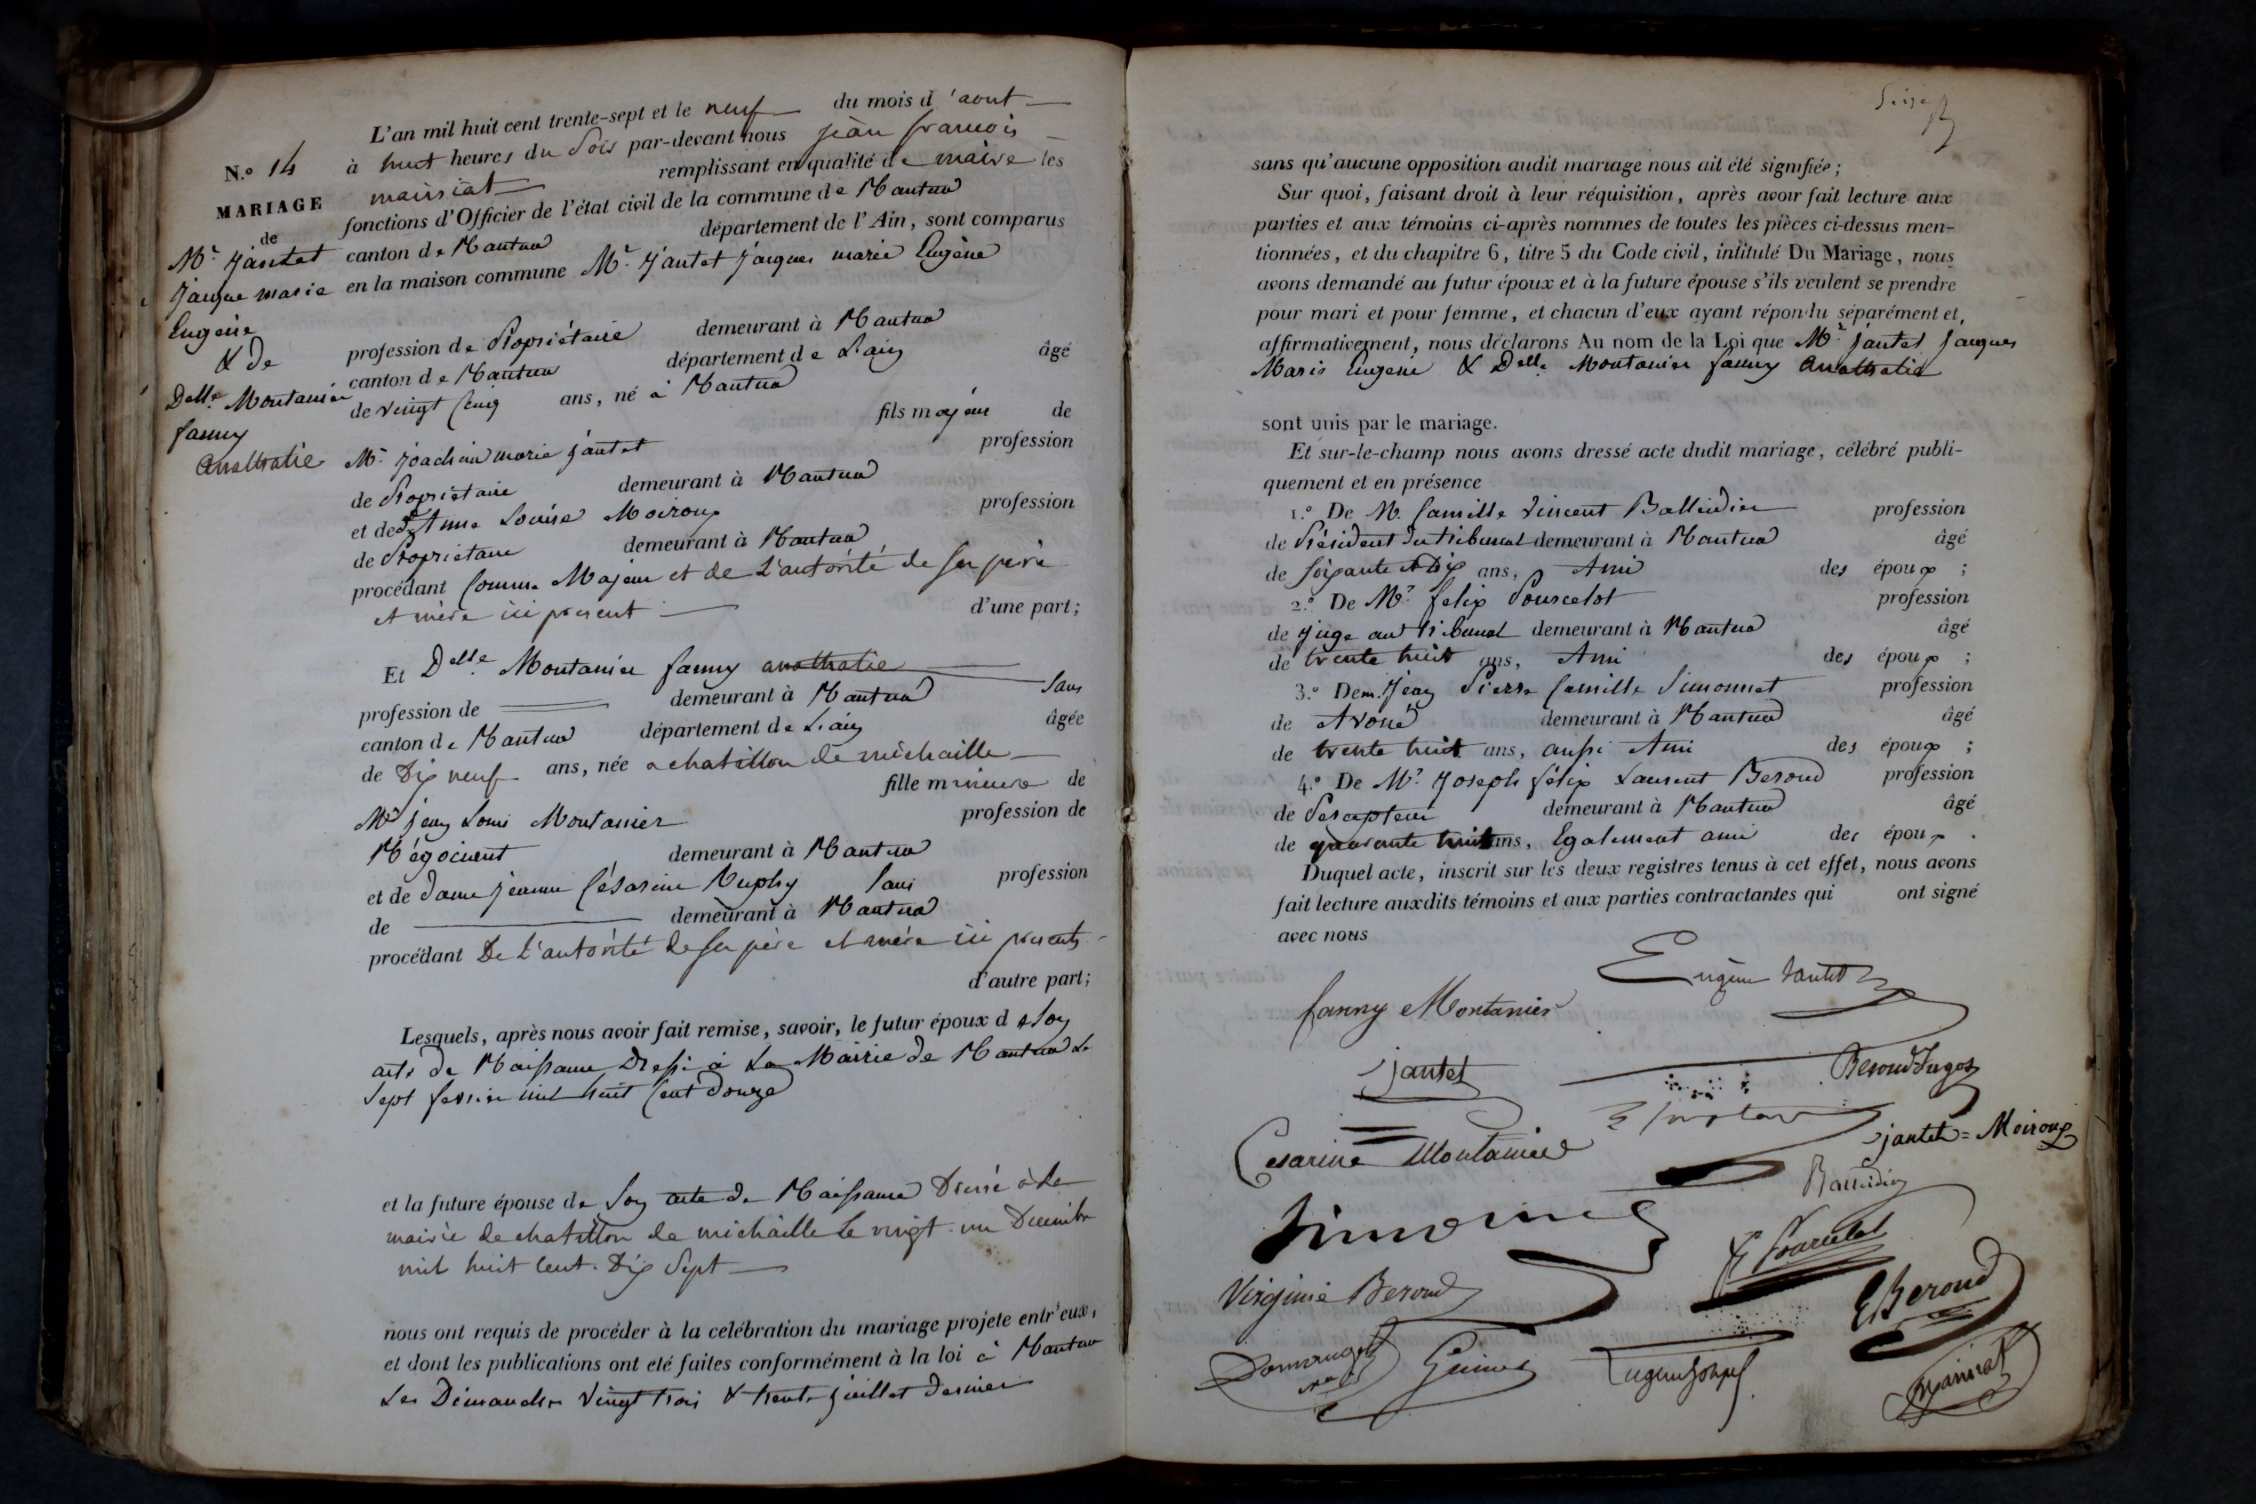 L'an mil huit cent trente-sept et le neuf du mois d'aout
N.o 14 à huit heures du Soir par-devant nous jean francois
mairiat remplissant en qualité de maire les
MARIAGE fonctions d'Officier de l'état civil de la commune de Nantua
de
Mr. jantet canton de Nantua département de l'Ain, sont comparus
jacque marie en la maison commune Mr. jantet jacques marie Eugène
Eugène
& de profession de Propriétaire demeurant à Nantua
Delle. Montanier canton de Nantua département de L'ain âgé
fanny de vingt Cinq ans, né à Nantua
anathalie fils majeur de
Mr. joachim marie jantet profession
de Propriétaire demeurant à Nantua
et de Anne Louise Moiroux profession
de Propriétaire demeurant à Nantua
procédant Comme Majeur et de L'autorité de Ses père
et mère ici present d'une part;
Et Delle. Montanier fanny anathalie
Sans
profession de demeurant à Nantua
canton de Nantua département de L'ain âgée
de Dix neuf ans, née a chatillon de michaille
fille mineure de
Mr jean Louis Montanier profession de
Négociant demeurant à Nantua
et de dame jeanne Césarine Sans profession
de demeurant à Nantua
procédant De L'autorité de Ses père et mère ici presents
d'autre part;
Lesquels, après nous avoir fait remise, savoir, le futur époux de Son
acte de Naissance Dressé à La Mairie de Nantua Le
Sept fevrier mil huit Cent Douze
et la future épouse de Son acte de Naissance Dressé à La
mairie de chatillon de michaille Le vingt un Decembre
mil huit Cent Dix Sept
nous ont requis de procéder à la celébration du mariage projete entr'eux,
et dont les publications ont eté faites conformément à la loi à Nantua
Les Dimanches vingt trois & trente juillet dernier
Seize
sans qu'aucune opposition audit mariage nous ait été signifiée;
Sur quoi, faisant droit à leur réquisition, après avoir fait lecture aux
parties et aux témoins ci-après nommes de toutes les pièces ci-dessus men-
tionnées, et du chapitre 6, titre 5 du Code civil, intitulé Du Mariage, nous
avons demandé au futur époux et à la future épouse s'ils veulent se prendre
pour mari et pour femme, et chacun d'eux ayant répondu séparément et
affirmativement, nous déclarons Au nom de la Loi que Mr. jantet jacques
Marie Eugène & Delle. Montanier fanny anathalie
sont unis par le mariage.
Et sur-le-champ nous avons dressé acte dudit mariage, célébré publi-
quement et en présence
1.o De M. Camille Vincent Balleidier profession
de Président du tribunal demeurant à Nantua âgé
de Soixante et Dix ans, Ami des époux;
2.o De Mr. felix Pourcelot profession
de juge au tribunal demeurant à Nantua âgé
de trente huit ans, Ami des époux;
3.o De m. jean Pierre Camille Simonnet profession
de Avoué demeurant à Nantua âgé
de trente huit ans, aussi Ami des époux;
4.o De Mr. joseph félix Laurent Beroud profession
de Percepteur demeurant à Nantua âgé
de quarante huit ans, Egalement ami des époux.
Duquel acte, inscrit sur les deux registres tenus à cet effet, nous avons
fait lecture auxdits témoins et aux parties contractantes qui ont signé
avec nous
Eugène Jantet
fanny Montanier
jantet
Beroud
jantet = Moiroux
Cesarine Montanier
Balleidier
Simonnet
Pourcelot
Virginie Beroud
Beroud
Mairiat